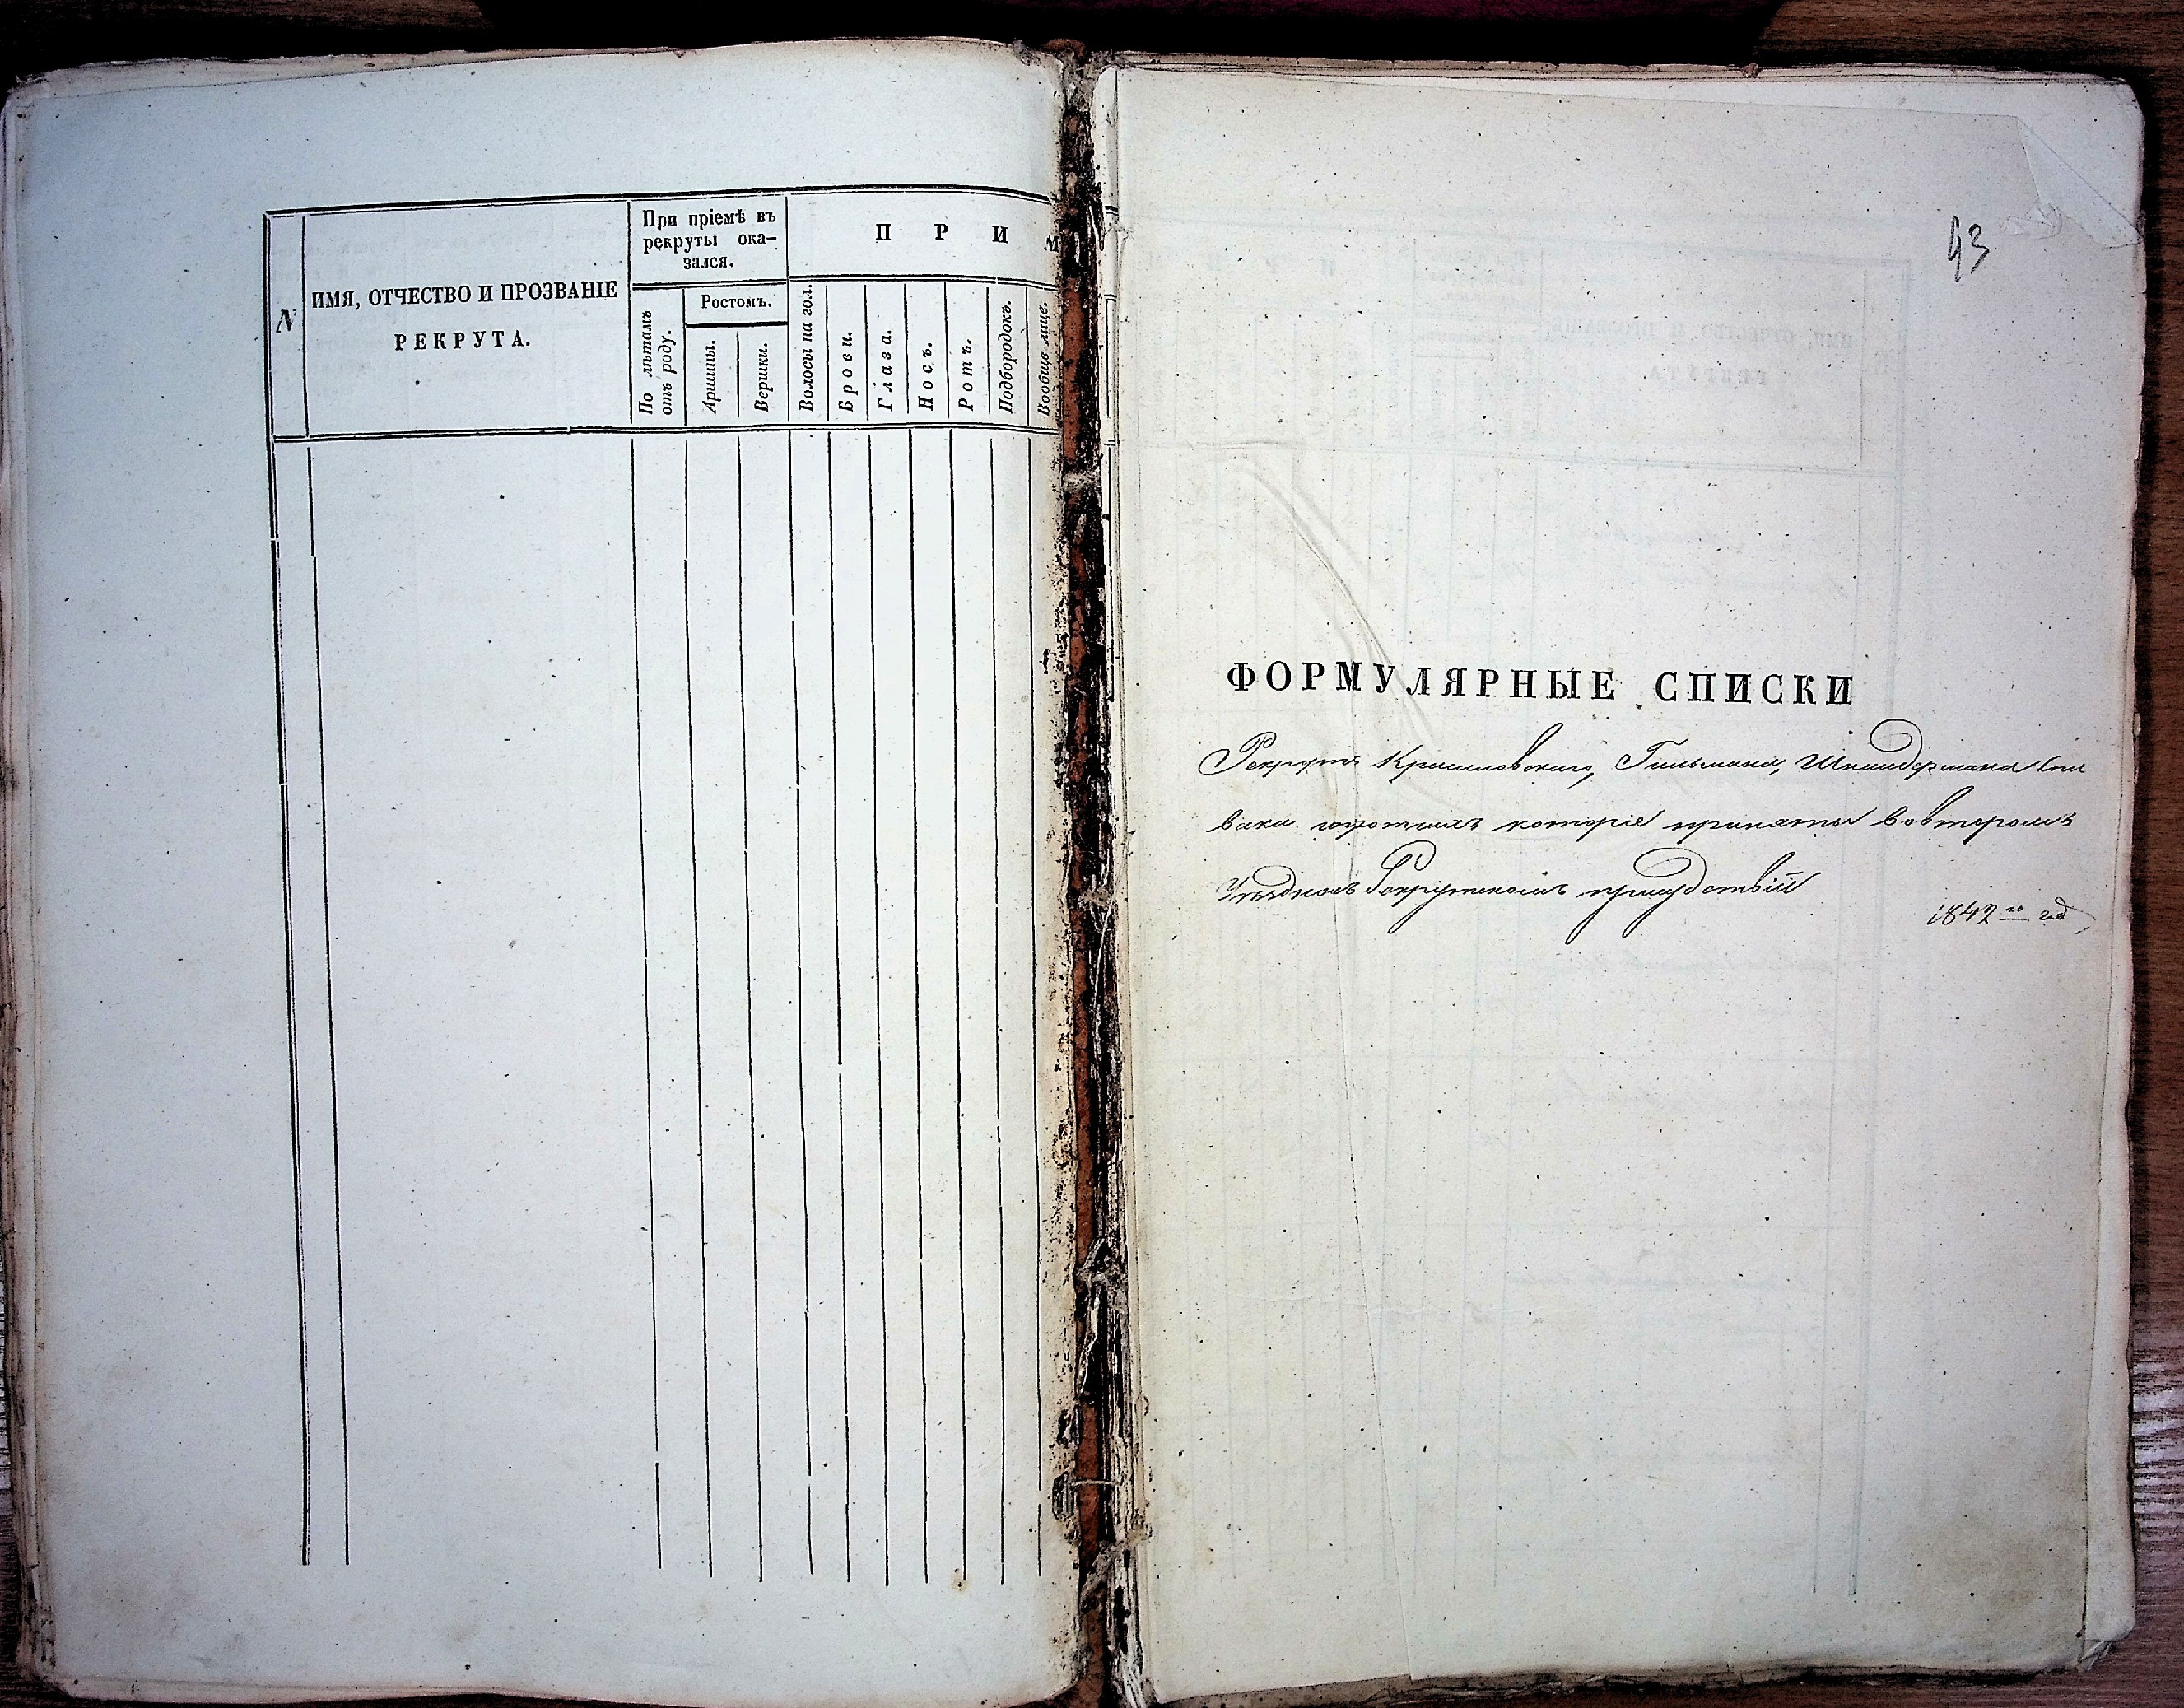 N
ИМЯ, ОТЧЕСТВО И ПРОЗВАНІЕ
РЕКРУТА.
При пріемѣ въ
рекруты ока-
зался.
По лѣтамъ
отъ роду.
Ростомъ.
Аршины.
Вершки.
П Р И М
Волосы на гол.
Брови.
Глаза.
Носъ.
Ротъ.
Подбородокъ.
Вообще лице.
93
ФОРМУЛЯРНЫЕ СПИСКИ
Рекрутъ Гильмана,
которіе приняты во второмъ
Уѣздномъ Рекрутскомъ присудствіи
1842 го год